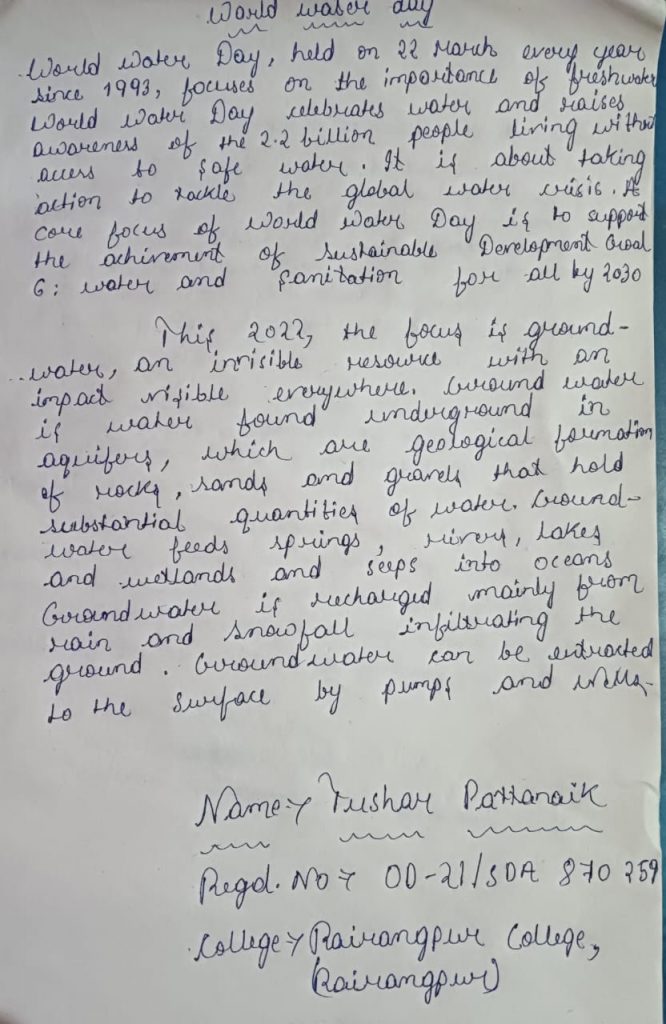 World water day
World Water Day, held on 22 March every year
since 1993, focuses on the importance of freshwater
World Water Day celebrates water and raises
awareness of the 2.2 billion people living without
access to safe water. It is about taking
action to tackle the global water crisis. A
core focus of World Water Day is to support
the achivement of Sustainable Development Goal
6: water and Sanitation for all by 2030
This 2022, the focus is ground-
water, an invisible resource with an
impact visible everywhere. Ground water
is water found underground in
aquifers, which are geological formation
of rocks, sands and gravels that hold
substantial quantities of water. Ground-
water feeds springs, rivers, lakes
and wetlands and seeps into oceans
Groundwater is recharged mainly from
rain and snowfall infiltrating the
ground. Groundwater can be extracted
to the surface by pumps and wells.
Name:- Tushar Pattanaik
Regd. No:- OD-21/SDA 870 259
College:- Rairangpur College,
(Rairangpur)